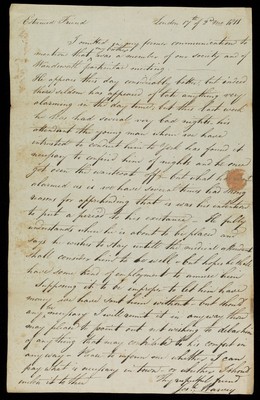 Esteemed Friend London 17th of 2nd Mo 1818
I omitted in my former communication to
mention that my brother was a member of our society and of
Wandsworth particular meeting
He appears this day considerably better, but indeed
there seldom has appeared of late anything very
alarming in the day time, but this last week
he has had several very bad nights, his
attendant the young man whom we have
intrusted to conduct him to York has found it
necessary to confine him of nights and he once
got over the
alarmed us is we have several times had strong
reasons for apprehending that it was his intention
to put a period to his existence. He fully
understands where he is about to be placed and
says he wishes to stay until the medical attendants
shall consider him to be well, but hopes he shall
have some kind of employment to amuse him
Supposing it to be improper to let him have
money we have sent him without but should
any be necessary I will remit it in any way thou
may please to point out not wishing to debar him
of anything that may contribute to his comfort in
any way. Please to inform me whether I can
pay what is necessary in town or whether I should
remit it to thee
Thy respectful friend